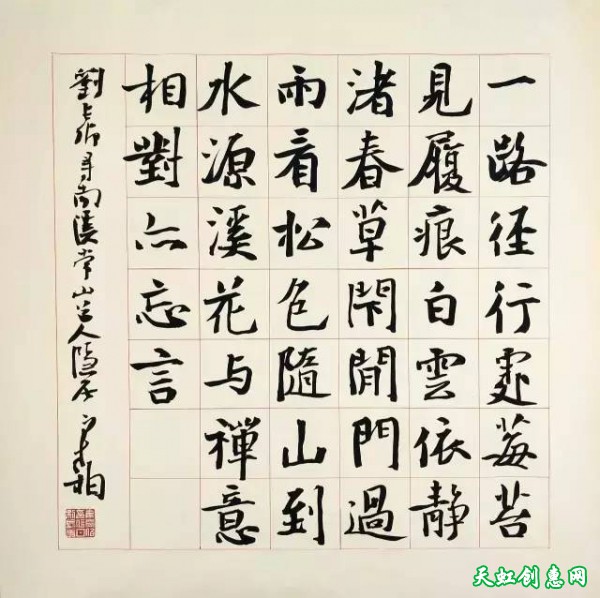 一路径行處莓苔
見履痕白雲依靜
渚春草閇閒門過
雨看松色隨山到
水源溪花与禪意
相對亦忘言
劉長卿尋南溪常山道人隱居
天虹创惠网